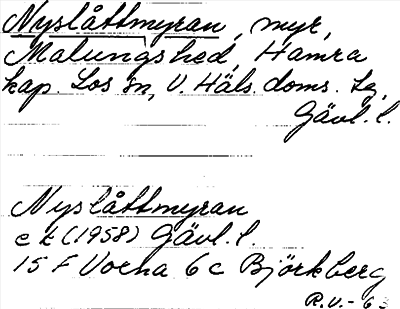 Nyslåttmyran, myr,
Malungshed, Hamra
kap. Los sn, V. Häls. doms. Lg,
Gävl. l.
Nyslåttmyran
e k (1958) Gävl. l.
15 F Voxna 6 c Björkberg
R.V. - 63